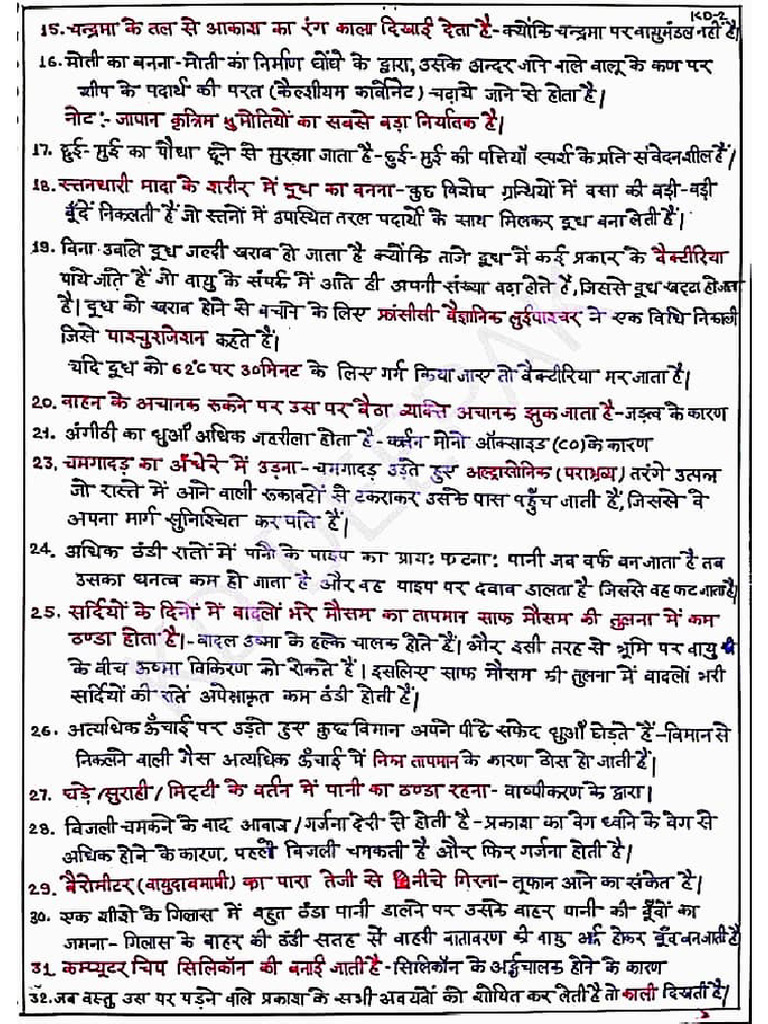 KD-2
15. चन्द्रमा के तल से आकाश का रंग काला दिखाई देता है - क्योंकि चन्द्रमा पर वायुमंडल नहीं है।
16. मोती का बनना - मोती का निर्माण घोंघे के द्वारा, उसके अन्दर जाने वाले बालू के कण पर
शीप के पदार्थ की परत (कैल्शीयम कार्बोनेट) चढ़ाये जाने से होता है।
नोट :- जापान कृत्रिम मोतियों का सबसे बड़ा निर्यातक है।
17. छुई-मुई का पौधा छूने से मुरझा जाता है - छुई-मुई की पत्तियाँ स्पर्श के प्रति संवेदनशील हैं।
18. स्तनधारी मादा के शरीर में दूध का बनना - कुछ विशेष ग्रन्थियों में वसा की बड़ी-बड़ी
बूँदें निकलती हैं जो स्तनों में उपस्थित तरल पदार्थो के साथ मिलकर दूध बना लेती हैं।
19. बिना उबाले दूध जल्दी खराब हो जाता है क्योंकि ताजे दूध में कई प्रकार के बैक्टीरिया
पाये जाते हैं जो वायु के संपर्क में आते ही अपनी संख्या बढ़ा लेते हैं, जिससे दूध खट्टा हो जाता
है। दूध को खराब होने से बचाने के लिए फ्रांसीसी वैज्ञानिक लुईपाश्चर ने एक विधि निकाली
जिसे पाश्चुराजेशन कहते हैं।
यदि दूध को 62°C पर 30 मिनट के लिए गर्म किया जाए तो बैक्टीरिया मर जाता है।
20. वाहन के अचानक रुकने पर उस पर बैठा व्यक्ति अचानक झुक जाता है - जड़त्व के कारण
21. अंगीठी का धुआँ अधिक जहरीला होता है - कार्बन मोनो ऑक्साइड (CO) के कारण
23. चमगादड़ का अँधेरे में उड़ना - चमगादड़ उड़ते हुए अल्ट्रासोनिक (पराश्रव्य) तरंगे उत्पन्न
जो रास्ते में आने वाली रुकावटों से टकराकर उसके पास पहुँच जाती हैं, जिससे वे
अपना मार्ग सुनिश्चित कर पाते हैं।
24. अधिक ठंडी रातों में पानी के पाइप का प्राय: फटना: पानी जब बर्फ बन जाता है तब
उसका घनत्व कम हो जाता है और वह पाइप पर दबाव डालता है जिससे वह फट जाता है।
25. सर्दियों के दिनों में बादलों भरे मौसम का तापमान साफ मौसम की तुलना में कम
ठण्डा होता है। - बादल ऊष्मा के हल्के चालक होते हैं। और इसी तरह से भूमि पर वायु
के बीच ऊष्मा विकिरण को रोकते हैं। इसलिए साफ मौसम की तुलना में बादलों भरी
सर्दियों की रातें अपेक्षाकृत कम ठंडी होती हैं।
26. अत्यधिक ऊँचाई पर उड़ते हुए कुछ विमान अपने पीछे सफेद धुआँ छोड़ते हैं - विमान से
निकलने वाली गैस अत्यधिक ऊँचाई में निम्न तापमान के कारण ठोस हो जाती हैं।
27. घड़े/सुराही/मिट्टी के बर्तन में पानी का ठण्डा रहना - वाष्पीकरण के द्वारा।
28. बिजली चमकने के बाद आवाज/गर्जना देरी से होती है - प्रकाश का वेग ध्वनि के वेग से
अधिक होने के कारण, पहले बिजली चमकती है और फिर गर्जना होती है।
29. बैरोमीटर (वायुदाबमापी) का पारा तेजी से नीचे गिरना - तूफान आने का संकेत है।
30. एक शीशे के गिलास में बहुत ठंडा पानी डालने पर उसके बाहर पानी की बूँदों का
जमना - गिलास के बाहर की ठंडी सतह से बाहरी वातावरण की वायु आर्द्र होकर बूँद बन जाती है
31. कम्प्यूटर चिप सिलिकॉन की बनाई जाती है - सिलिकॉन के अर्द्धचालक होने के कारण
32. जब वस्तु उस पर पड़ने वाले प्रकाश के सभी अवयवों को शोषित कर लेती है तो काली दिखती है।
KD DEEPAK